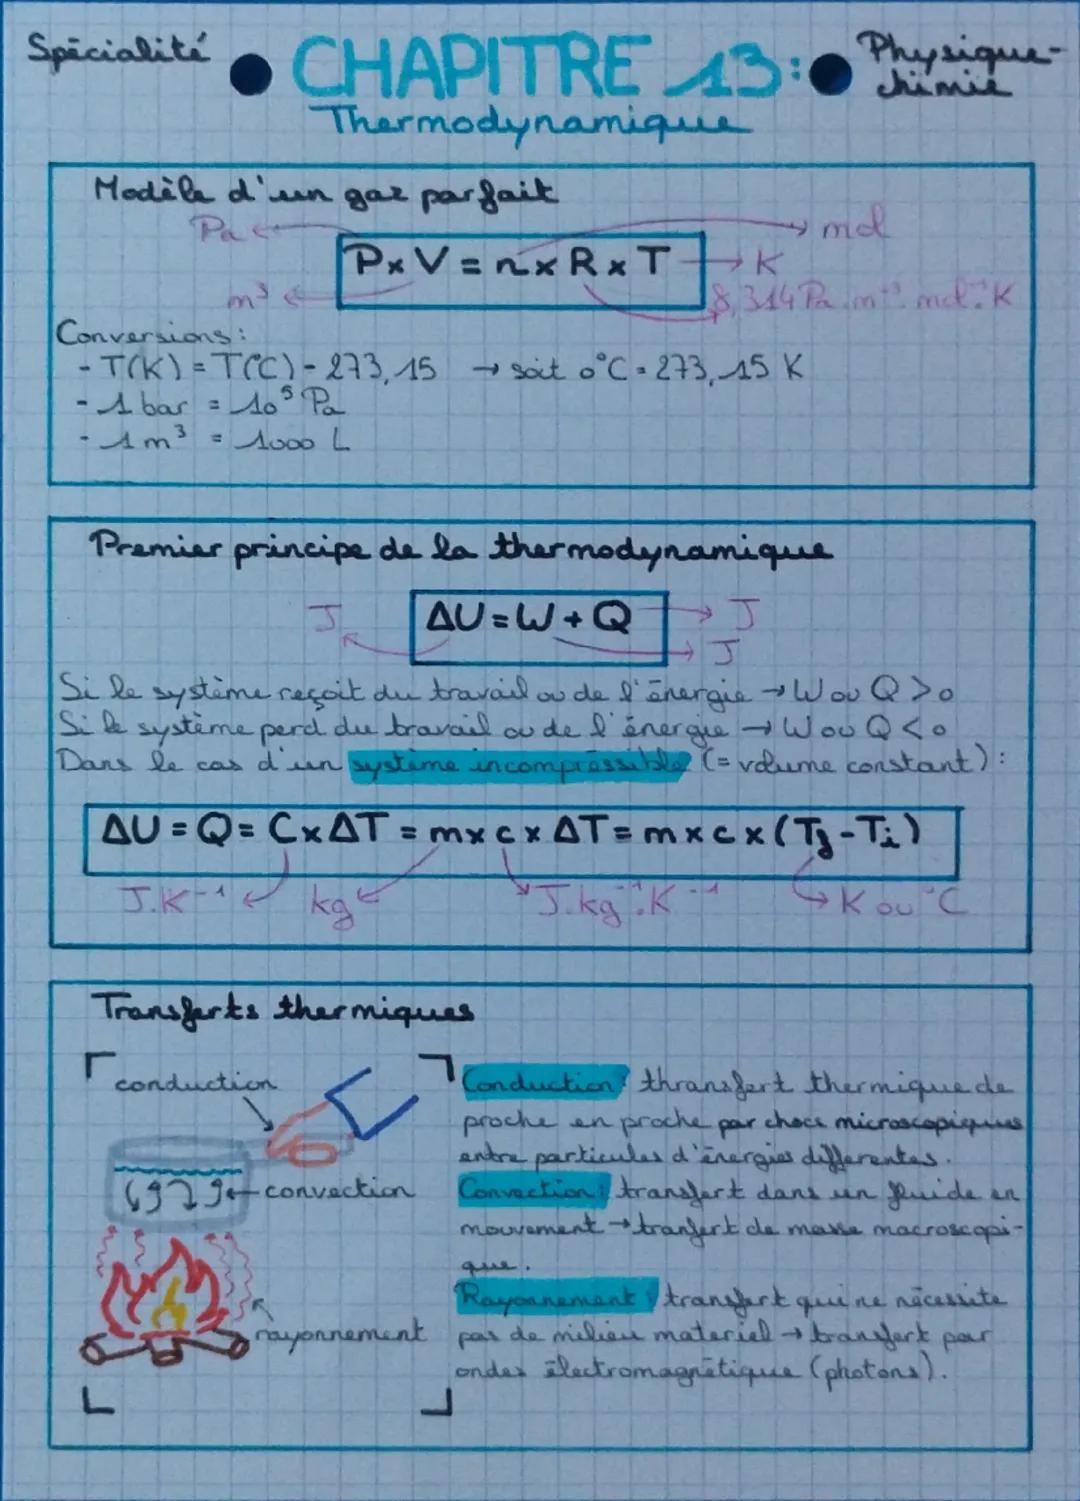 Spécialité
CHAPITRE 13:
Physique-
chimie
Thermodynamique
Modèle d'un gaz parfait
Pa
mol
P x V = n x R x T
K
m³
8,314 Pa.m⁻³.mol⁻¹.K
Conversions:
- T(K) = T(°C) - 273,15 → soit 0°C = 273,15 K
- 1 bar = 10⁵ Pa
- 1 m³ = 1000 L
Premier principe de la thermodynamique
J
ΔU = W + Q
J
J
Si le système reçoit du travail ou de l'énergie → W ou Q > 0
Si le système perd du travail ou de l'énergie → W ou Q < 0
Dans le cas d'un système incompressible (= volume constant):
ΔU = Q = C x ΔT = m x c x ΔT = m x c x (Tf - Ti)
J.K⁻¹
kg
J.kg⁻¹.K⁻¹
K ou °C
Transferts thermiques
conduction
convection
rayonnement
Conduction: thransfert thermique de
proche en proche par chocs microscopiques
entre particules d'énergies differentes.
Convection: transfert dans un fluide en
mouvement → tranfert de masse macroscopi-
que.
Rayonnement: transfert qui ne nécessite
pas de milieu materiel → transfert par
ondes électromagnétique (photons).